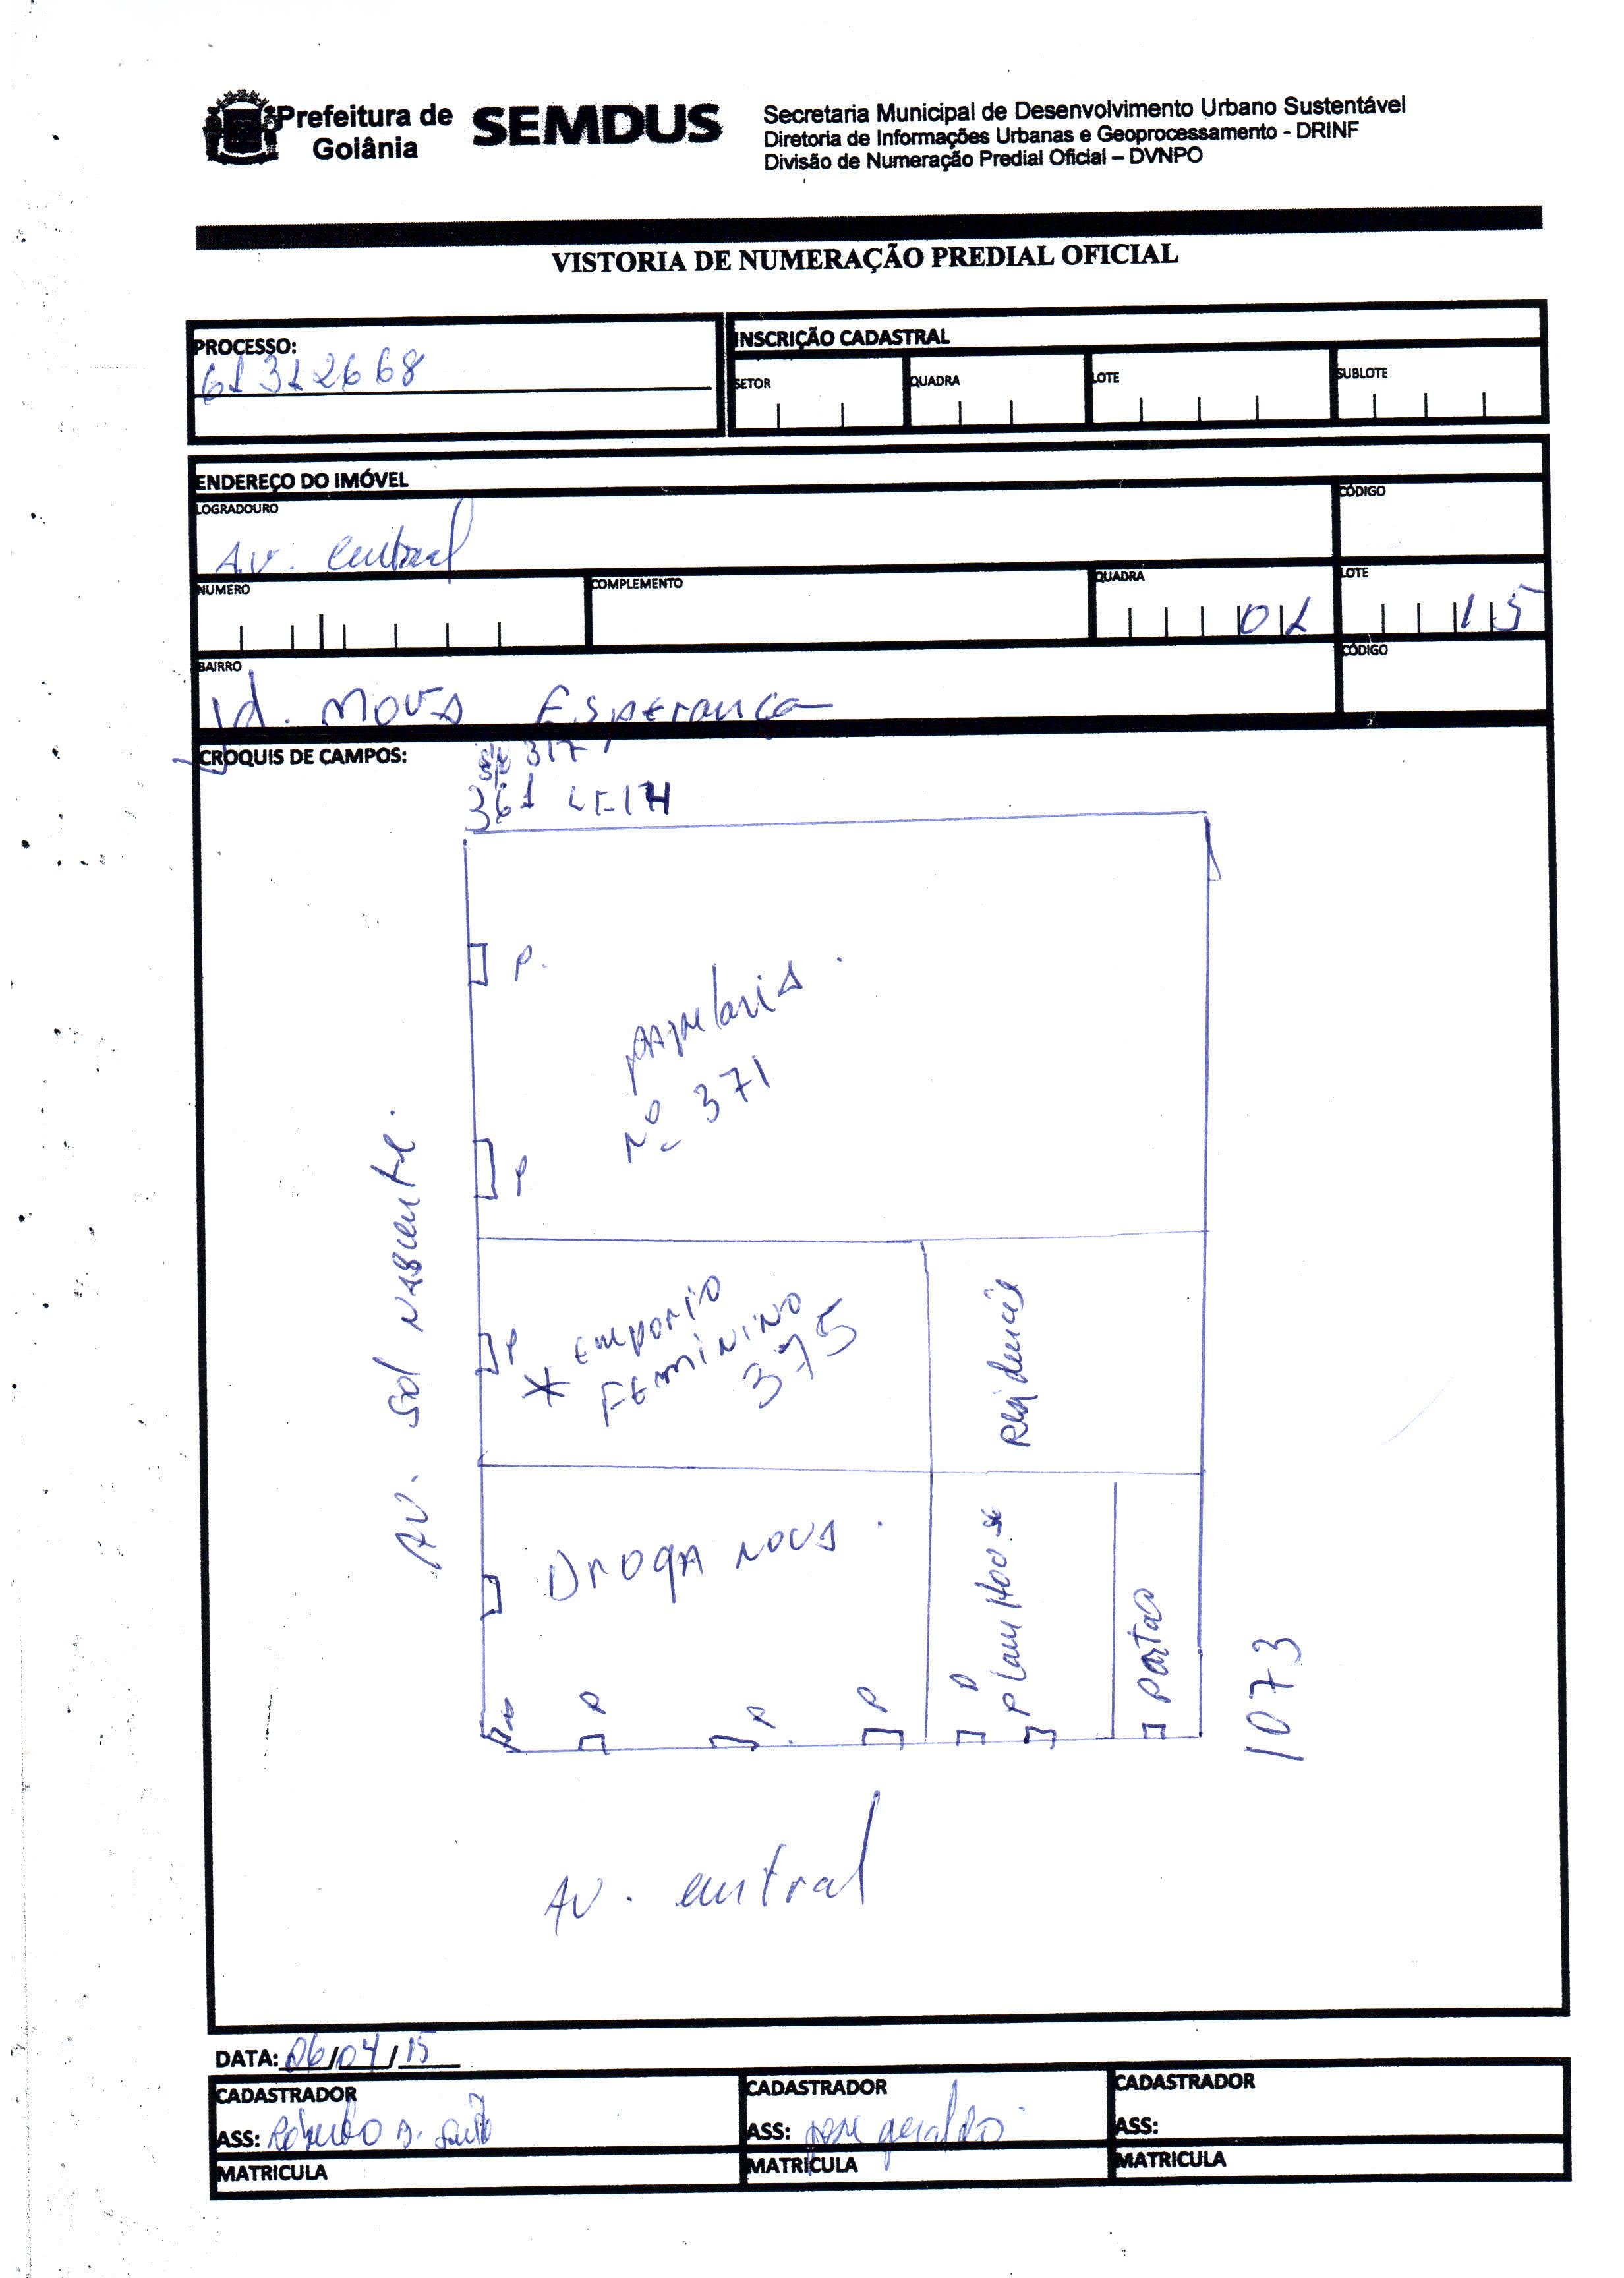 Prefeitura de
Goiânia
SEMDUS
Secretaria Municipal de Desenvolvimento Urbano Sustentável
Diretoria de Informações Urbanas e Geoprocessamento - DRINF
Divisão de Numeração Predial Oficial – DVNPO
VISTORIA DE NUMERAÇÃO PREDIAL OFICIAL
PROCESSO:
61312668
INSCRIÇÃO CADASTRAL
SETOR
QUADRA
LOTE
SUBLOTE
ENDEREÇO DO IMÓVEL
LOGRADOURO
CÓDIGO
Av. Central
NUMERO
COMPLEMENTO
QUADRA
01
LOTE
15
BAIRRO
CÓDIGO
Jd. Nova Esperança
CROQUIS DE CAMPOS:
317
361 LT-14
P.
papelaria.
Nº 371
P
Av. Sol Nascente.
P
* Emporio
Feminino
375
Residencia
Droga Nova.
P
P
P
P
Portão
1073
Av. Central
DATA: 06/04/15
CADASTRADOR
CADASTRADOR
CADASTRADOR
ASS:
ASS: Jose Geraldo
ASS:
MATRICULA
MATRICULA
MATRICULA